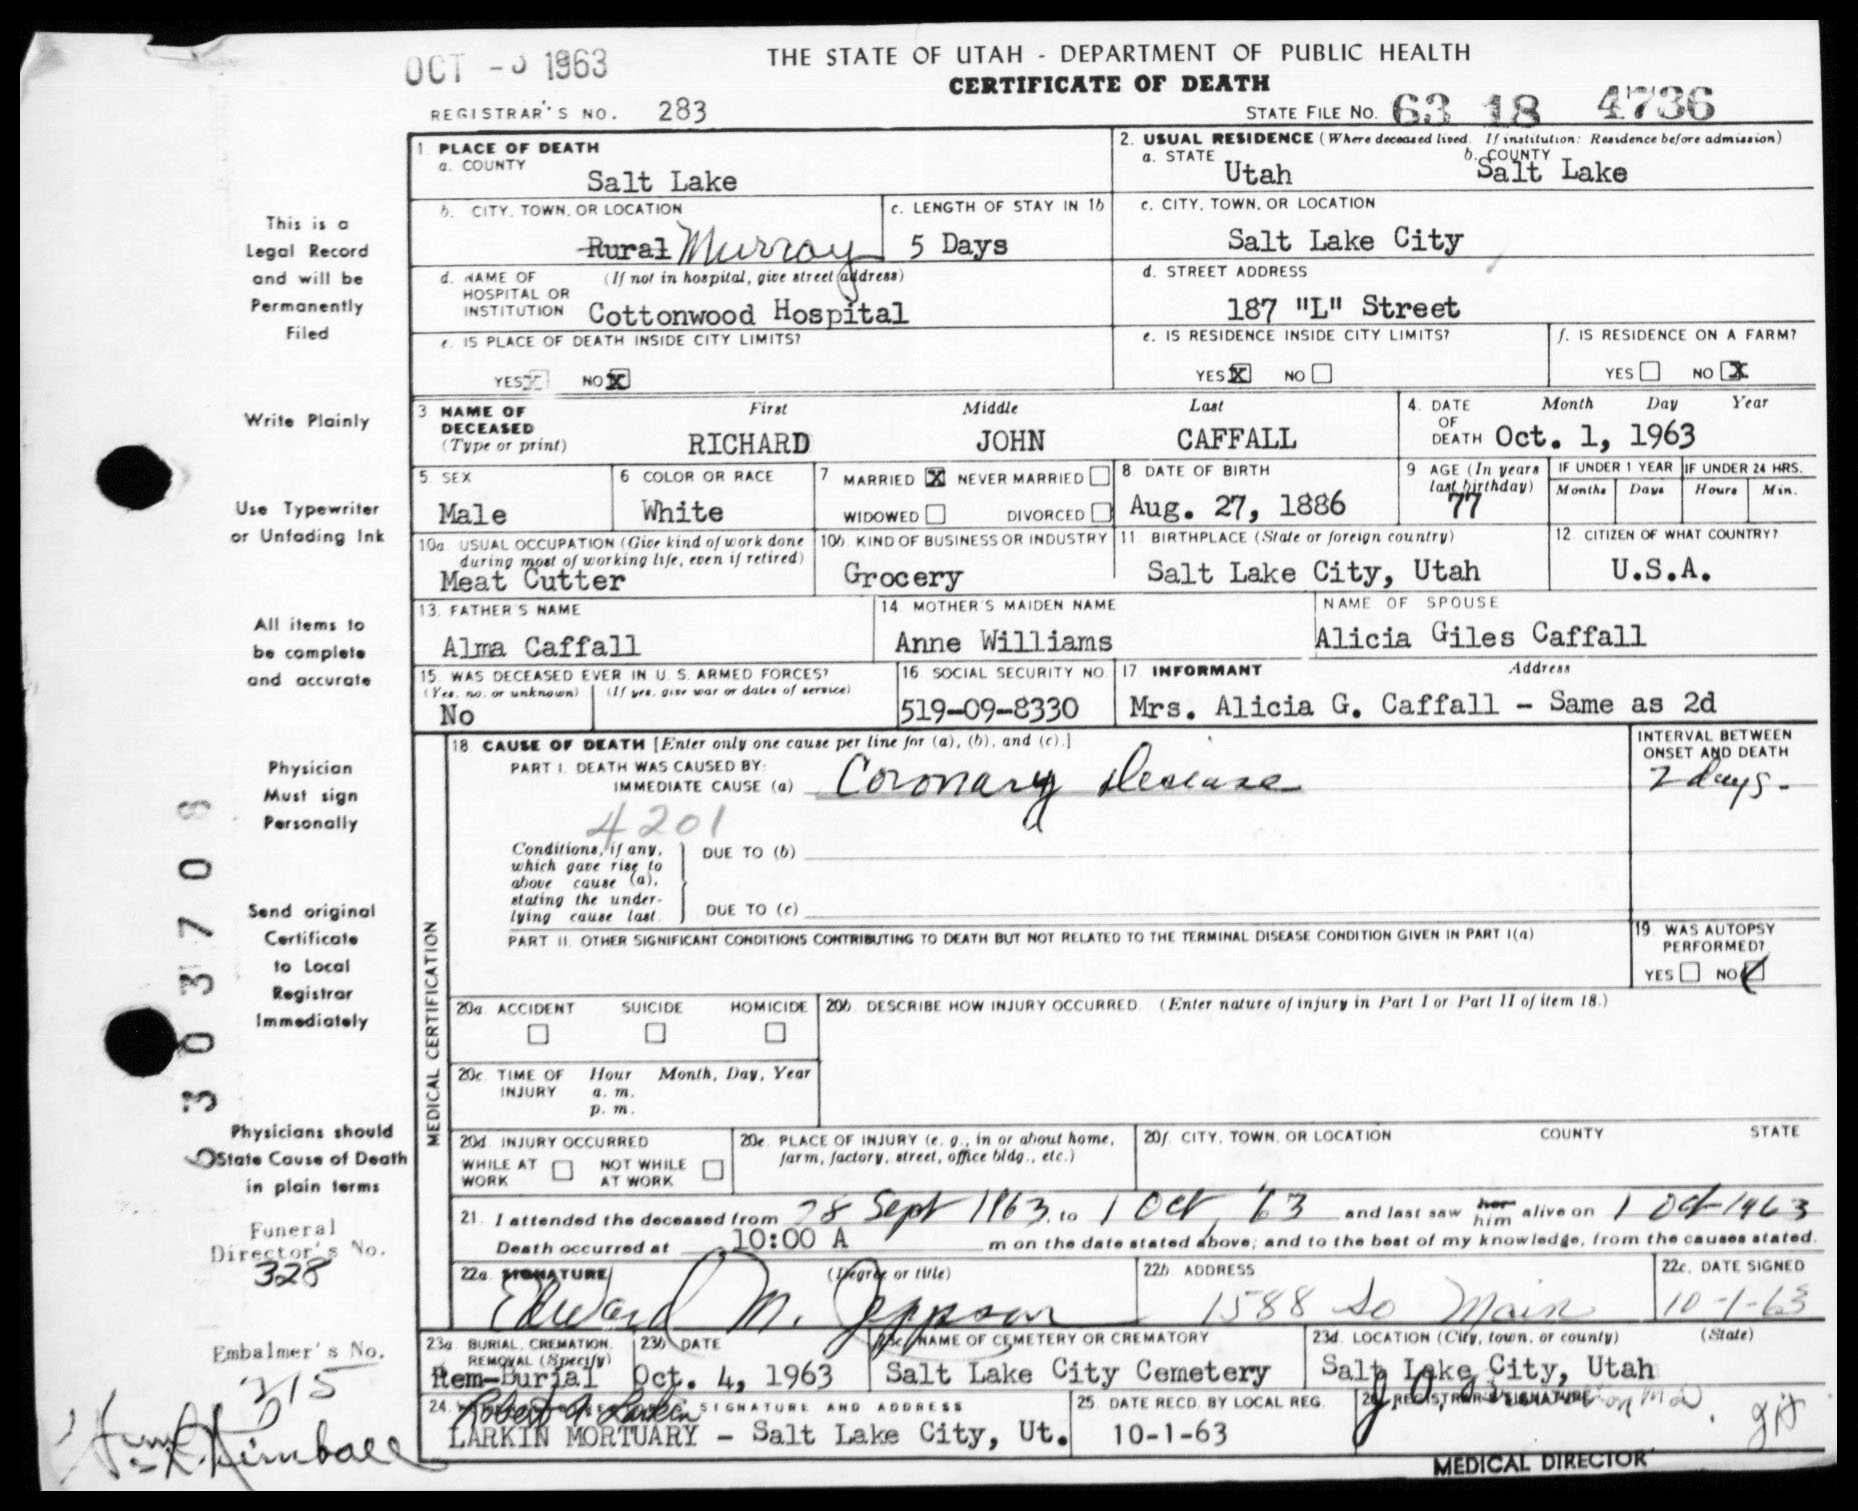 OCT - 1963
THE STATE OF UTAH - DEPARTMENT OF PUBLIC HEALTH
CERTIFICATE OF DEATH
REGISTRAR'S NO. 283
STATE FILE NO. 63 18 4736
This is a
Legal Record
and will be
Permanently
Filed
Write Plainly
Use Typewriter
or Unfading Ink
All items to
be complete
and accurate
Physician
Must sign
Personally
Send original
Certificate
to Local
Registrar
Immediately
Physicians should
State Cause of Death
in plain terms
Funeral
Director's No.
328
Embalmer's No.
215
Kimball
303708
1. PLACE OF DEATH
a. COUNTY
Salt Lake
2. USUAL RESIDENCE (Where deceased lived. If institution: Residence before admission)
a. STATE Utah b. COUNTY Salt Lake
b. CITY, TOWN, OR LOCATION
Rural Murray
c. LENGTH OF STAY IN 1b
5 Days
c. CITY, TOWN, OR LOCATION
Salt Lake City
d. NAME OF HOSPITAL OR INSTITUTION (If not in hospital, give street address)
Cottonwood Hospital
d. STREET ADDRESS
187 "L" Street
e. IS PLACE OF DEATH INSIDE CITY LIMITS?
YES X NO X
e. IS RESIDENCE INSIDE CITY LIMITS?
YES X NO
f. IS RESIDENCE ON A FARM?
YES NO X
3 NAME OF DECEASED (Type or print)
First Middle Last
RICHARD JOHN CAFFALL
4. DATE OF DEATH Month Day Year
Oct. 1, 1963
5 SEX
Male
6 COLOR OR RACE
White
7 MARRIED X NEVER MARRIED
WIDOWED DIVORCED
8 DATE OF BIRTH
Aug. 27, 1886
9 AGE (In years last birthday)
77
IF UNDER 1 YEAR IF UNDER 24 HRS.
Months Days Hours Min.
10a. USUAL OCCUPATION (Give kind of work done during most of working life, even if retired)
Meat Cutter
10b. KIND OF BUSINESS OR INDUSTRY
Grocery
11 BIRTHPLACE (State or foreign country)
Salt Lake City, Utah
12. CITIZEN OF WHAT COUNTRY?
U.S.A.
13. FATHER'S NAME
Alma Caffall
14 MOTHER'S MAIDEN NAME
Anne Williams
NAME OF SPOUSE
Alicia Giles Caffall
15. WAS DECEASED EVER IN U. S. ARMED FORCES?
(Yes, no, or unknown) (If yes, give war or dates of service)
No
16 SOCIAL SECURITY NO.
519-09-8330
17 INFORMANT Address
Mrs. Alicia G. Caffall - Same as 2d
MEDICAL CERTIFICATION
18. CAUSE OF DEATH [Enter only one cause per line for (a), (b), and (c).]
PART I. DEATH WAS CAUSED BY:
IMMEDIATE CAUSE (a) Coronary Disease
INTERVAL BETWEEN ONSET AND DEATH
2 days.
4201
Conditions, if any, which gave rise to above cause (a), stating the underlying cause last.
DUE TO (b)
DUE TO (c)
PART II. OTHER SIGNIFICANT CONDITIONS CONTRIBUTING TO DEATH BUT NOT RELATED TO THE TERMINAL DISEASE CONDITION GIVEN IN PART I(a)
19. WAS AUTOPSY PERFORMED?
YES NO
20a. ACCIDENT SUICIDE HOMICIDE
20b. DESCRIBE HOW INJURY OCCURRED. (Enter nature of injury in Part I or Part II of item 18.)
20c. TIME OF INJURY Hour Month, Day, Year
a. m.
p. m.
20d. INJURY OCCURRED
WHILE AT WORK NOT WHILE AT WORK
20e. PLACE OF INJURY (e. g., in or about home, farm, factory, street, office bldg., etc.)
20f. CITY, TOWN, OR LOCATION COUNTY STATE
21. I attended the deceased from 28 Sept 1963, to 1 Oct, 63 and last saw her him alive on 1 Oct 1963
Death occurred at 10:00 A m on the date stated above; and to the best of my knowledge, from the causes stated.
22a. SIGNATURE (Degree or title)
Edward M. Jeppson
22b. ADDRESS
1588 So Main
22c. DATE SIGNED
10-1-63
23a. BURIAL, CREMATION, REMOVAL (Specify)
Rem-Burial
23b. DATE
Oct. 4, 1963
23c. NAME OF CEMETERY OR CREMATORY
Salt Lake City Cemetery
23d. LOCATION (City, town, or county) (State)
Salt Lake City, Utah
24. SIGNATURE AND ADDRESS
Larkin
LARKIN MORTUARY - Salt Lake City, Ut.
25. DATE RECD. BY LOCAL REG.
10-1-63
26. REGISTRAR'S SIGNATURE
MEDICAL DIRECTOR